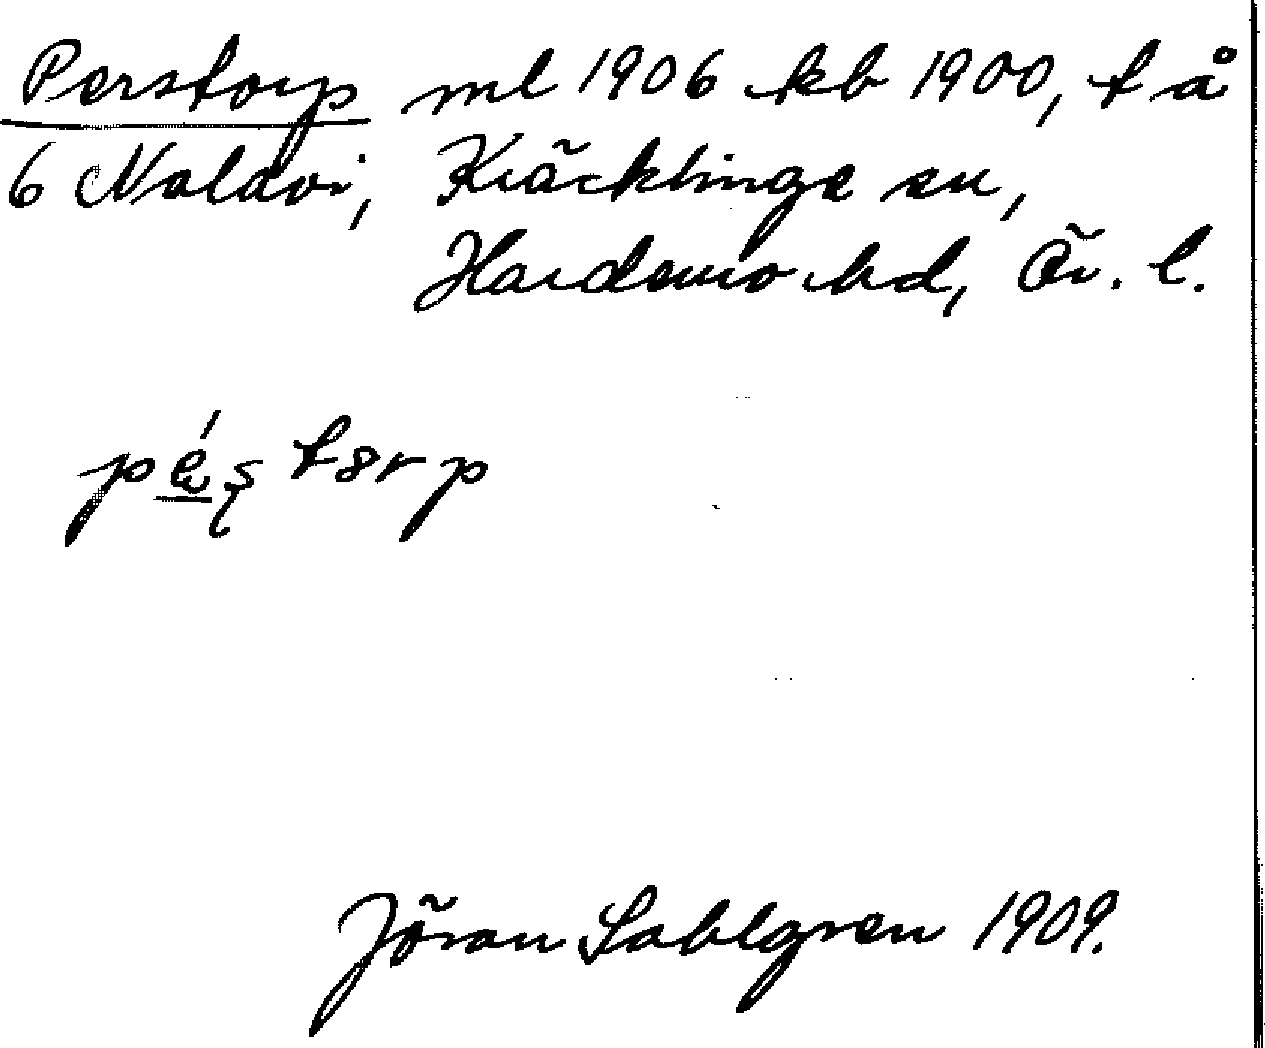 Perstorp ml 1906 kb 1900, t å
6 Nalavi, Kräcklinge sn,
Hardemo hd, Ör. l.
Jöran Sahlgren 1909.